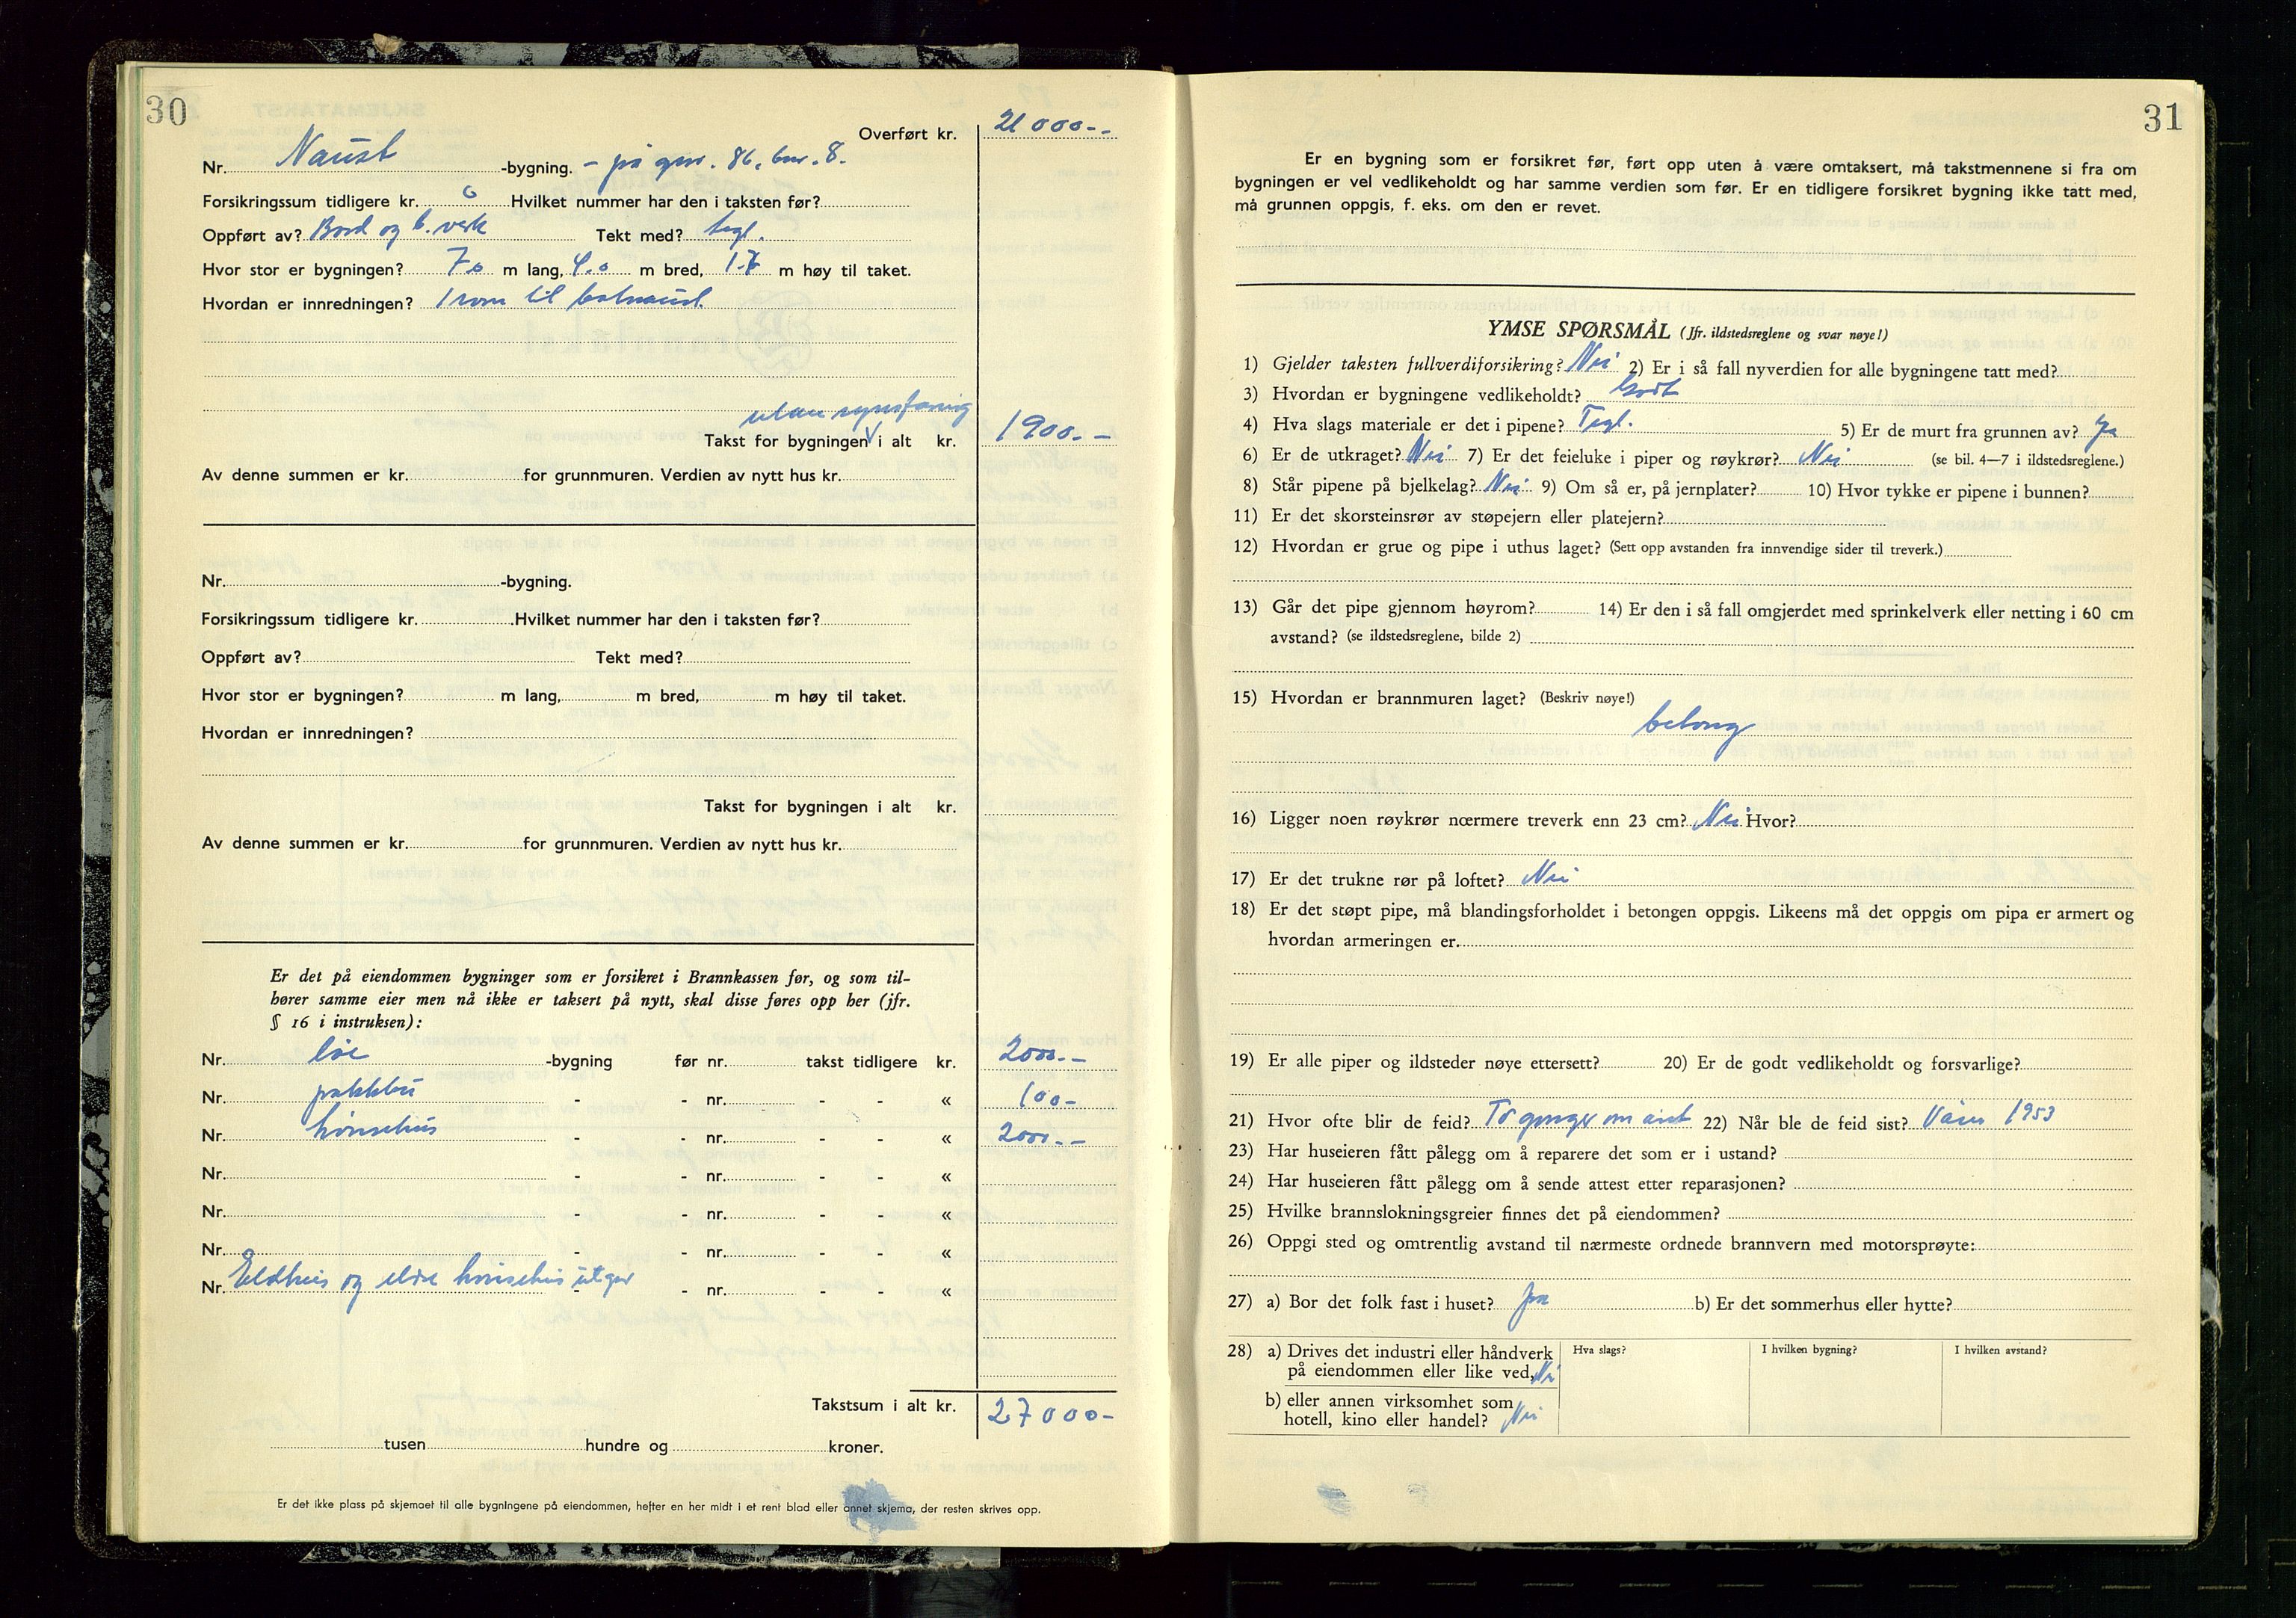 30
Overført kr. 21 000--
Nr. Naust -bygning. - på gnr. 86, bnr. 8.
Forsikringssum tidligere kr. 0 Hvilket nummer har den i taksten før?
Oppført av? Bord og b.verk Tekt med? tegl.
Hvor stor er bygningen? 7.0 m lang, 4.0 m bred, 1.7 m høy til taket.
Hvordan er innredningen? 1 rom til båtnaust.
utan synsfaring
Takst for bygningen V i alt kr. 1900.--
Av denne summen er kr. for grunnmuren. Verdien av nytt hus kr.
Nr. -bygning.
Forsikringssum tidligere kr. Hvilket nummer har den i taksten før?
Oppført av? Tekt med?
Hvor stor er bygningen? m lang, m bred, m høy til taket.
Hvordan er innredningen?
Takst for bygningen i alt kr.
Av denne summen er kr. for grunnmuren. Verdien av nytt hus kr.
Er det på eiendommen bygninger som er forsikret i Brannkassen før, og som til-
hører samme eier men nå ikke er taksert på nytt, skal disse føres opp her (jfr.
§ 16 i instruksen):
Nr. løe -bygning før nr. takst tidligere kr. 2000.--
Nr. pakkbu - - nr. - - « 100-
Nr. hønsehus - - nr. - - « 2000.--
Nr. - - nr. - - «
Nr. - - nr. - - «
Nr. - - nr. - - «
Nr. Eldhus og eldre hønsehus utgår - - nr. - - «
Takstsum i alt kr. 27000-
tusen hundre og kroner.
Er det ikke plass på skjemaet til alle bygningene på eiendommen, hefter en her midt i et rent blad eller annet skjema, der resten skrives opp.
31
Er en bygning som er forsikret før, ført opp uten å være omtaksert, må takstmennene si fra om
bygningen er vel vedlikeholdt og har samme verdien som før. Er en tidligere forsikret bygning ikke tatt med,
må grunnen oppgis, f. eks. om den er revet.
YMSE SPØRSMÅL (Jfr. ildstedsreglene og svar nøye!)
1) Gjelder taksten fullverdiforsikring? Nei 2) Er i så fall nyverdien for alle bygningene tatt med?
3) Hvordan er bygningene vedlikeholdt? Godt
4) Hva slags materiale er det i pipene? Tegl. 5) Er de murt fra grunnen av? Ja
6) Er de utkraget? Nei 7) Er det feieluke i piper og røykrør? Nei (se bil. 4—7 i ildstedsreglene.)
8) Står pipene på bjelkelag? Nei 9) Om så er, på jernplater? 10) Hvor tykke er pipene i bunnen?
11) Er det skorsteinsrør av støpejern eller platejern?
12) Hvordan er grue og pipe i uthus laget? (Sett opp avstanden fra innvendige sider til treverk.)
13) Går det pipe gjennom høyrom? 14) Er den i så fall omgjerdet med sprinkelverk eller netting i 60 cm
avstand? (se ildstedsreglene, bilde 2)
15) Hvordan er brannmuren laget? (Beskriv nøye!)
betong
16) Ligger noen røykrør nœrmere treverk enn 23 cm? Nei Hvor?
17) Er det trukne rør på loftet? Nei
18) Er det støpt pipe, må blandingsforholdet i betongen oppgis. Likeens må det oppgis om pipa er armert og
hvordan armeringen er.
19) Er alle piper og ildsteder nøye ettersett? 20) Er de godt vedlikeholdt og forsvarlige?
21) Hvor ofte blir de feid? To ganger om året 22) Når ble de feid sist? Våren 1953
23) Har huseieren fått pålegg om å reparere det som er i ustand?
24) Har huseieren fått pålegg om å sende attest etter reparasjonen?
25) Hvilke brannslokningsgreier finnes det på eiendommen?
26) Oppgi sted og omtrentlig avstand til nærmeste ordnede brannvern med motorsprøyte:
27) a) Bor det folk fast i huset? Ja b) Er det sommerhus eller hytte?
28) a) Drives det industri eller håndverk
på eiendommen eller like ved, Nei
b) eller annen virksomhet som
hotell, kino eller handel? Nei
Hva slags? I hvilken bygning? I hvilken avstand?